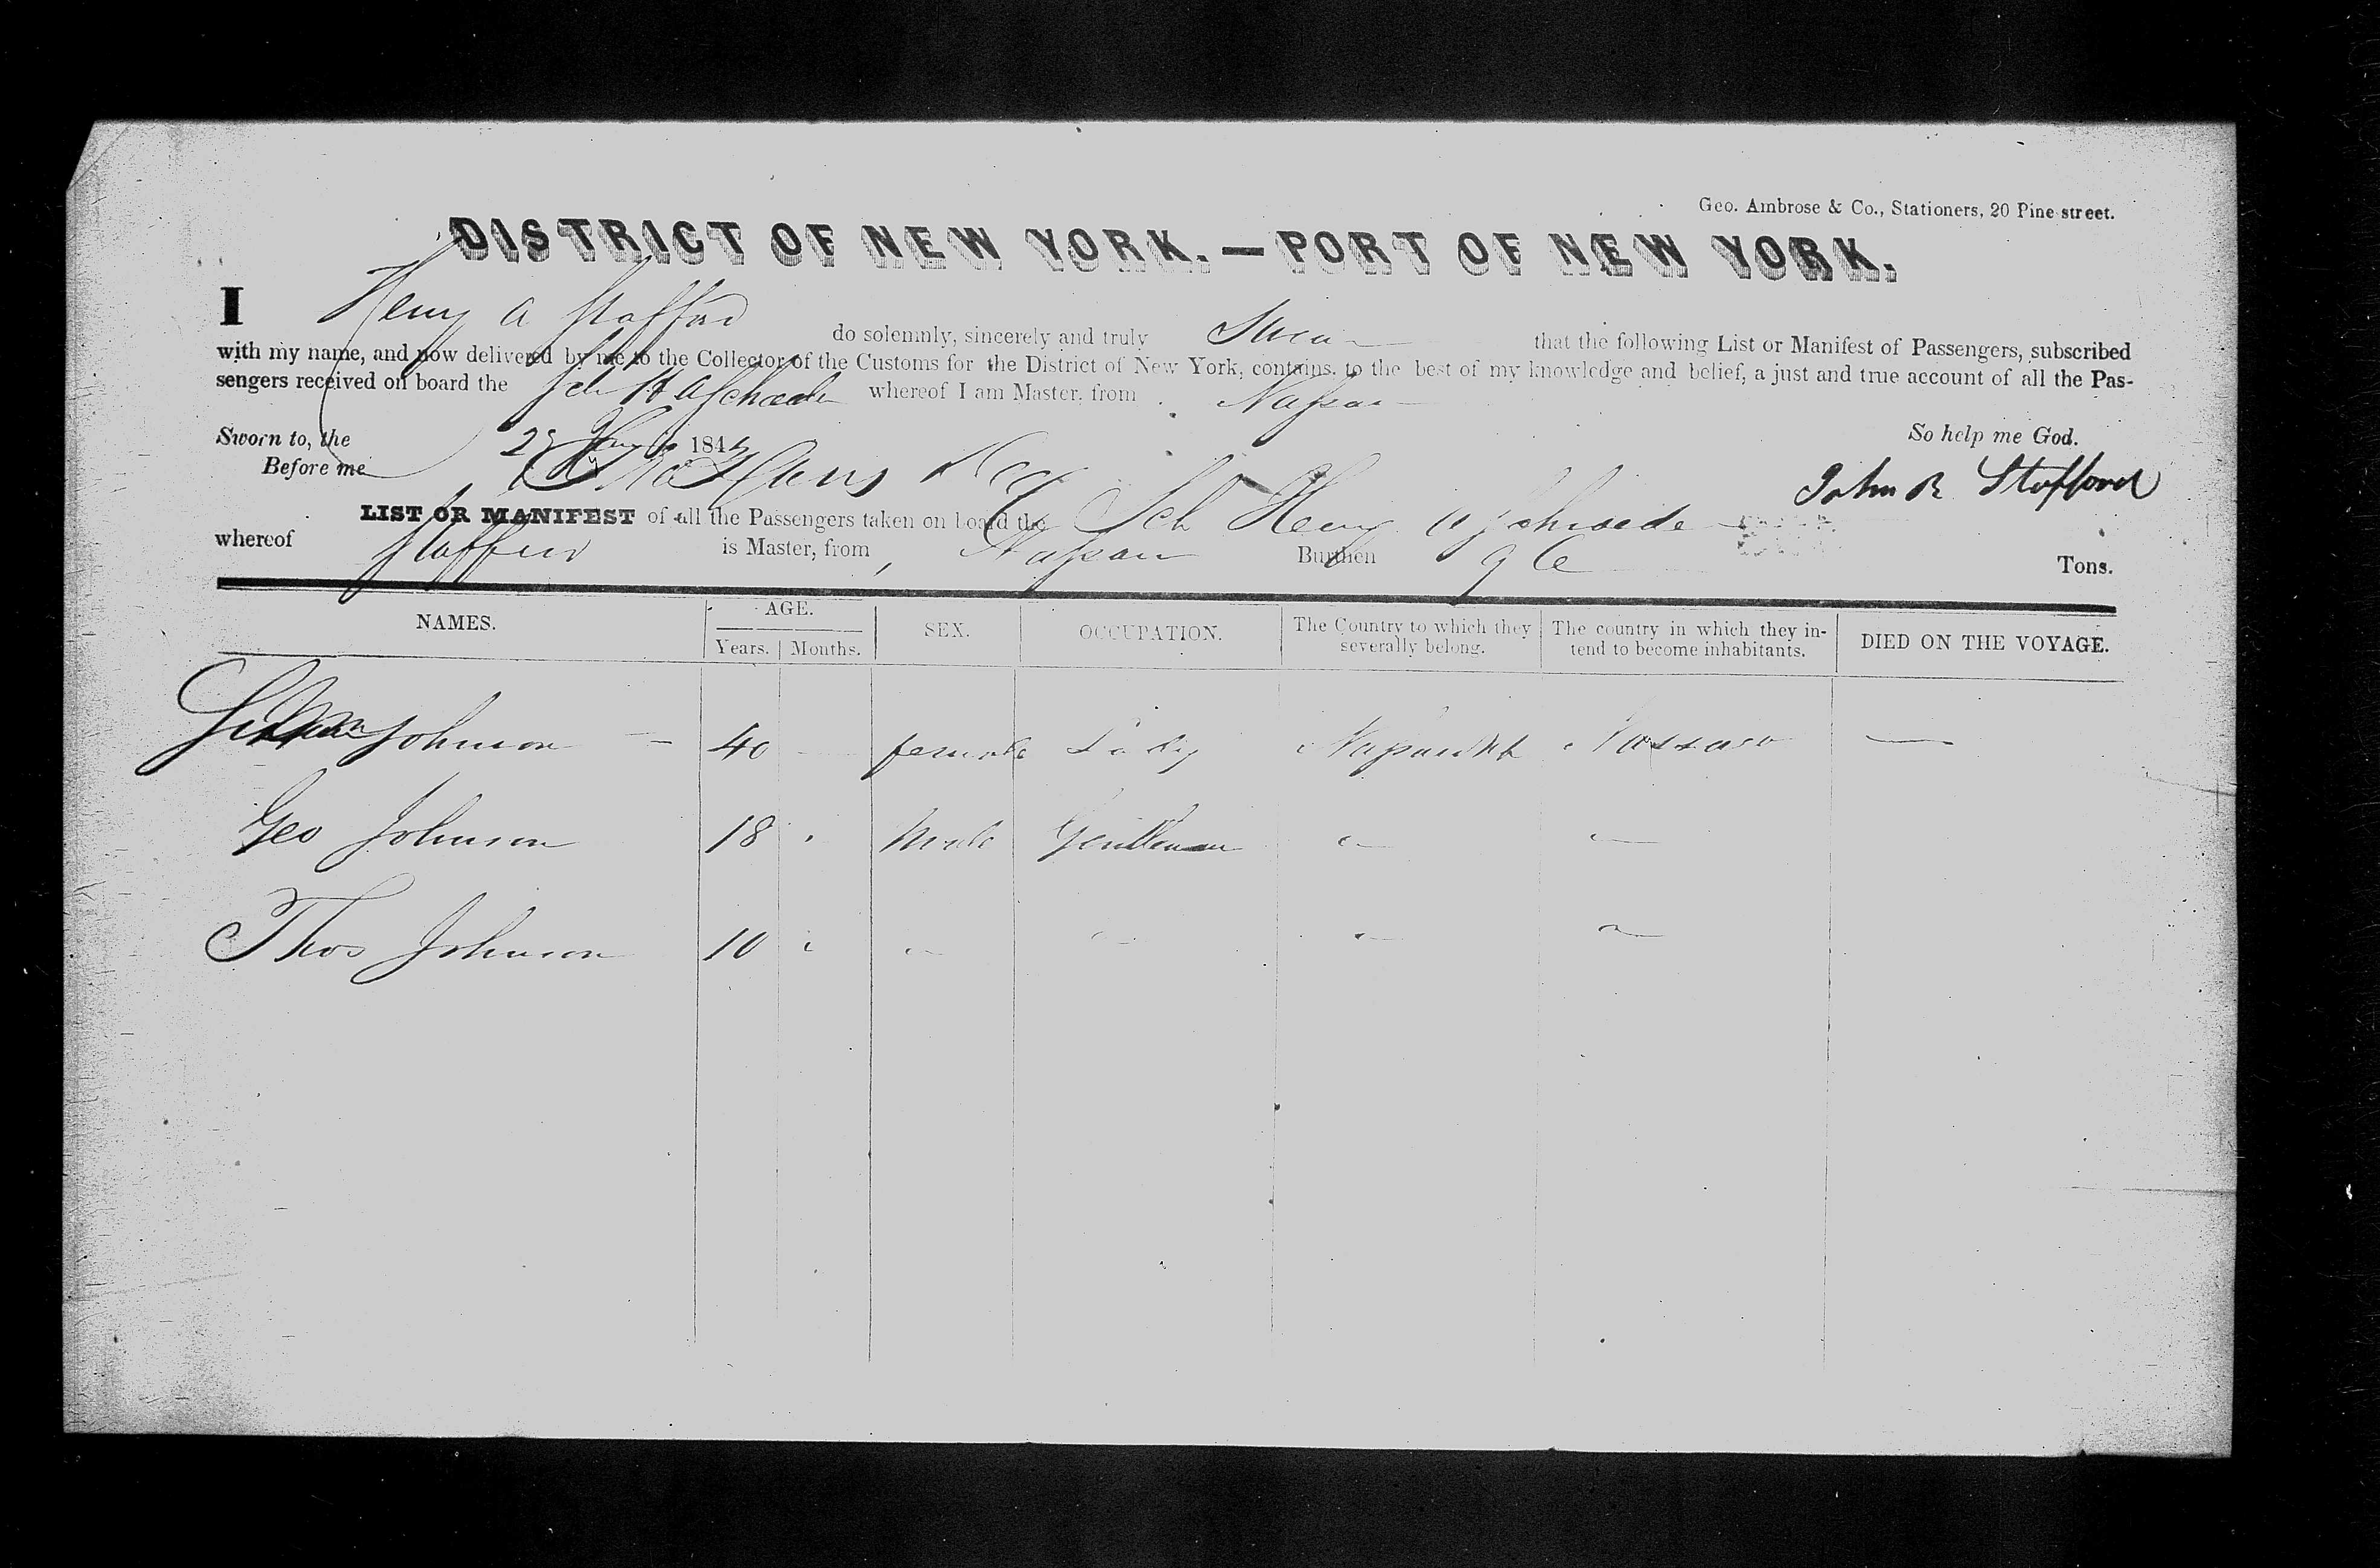 Geo. Ambrose & Co., Stationers, 20 Pine street.
DISTRICT OF NEW YORK.—PORT OF NEW YORK.
I Henry A Stafford do solemnly, sincerely and truly Swear that the following List or Manifest of Passengers, subscribed
with my name, and now delivered by me to the Collector of the Customs for the District of New York, contains, to the best of my knowledge and belief, a just and true account of all the Pas-
sengers received on board the Sch H A Schroeder whereof I am Master, from Nassau
Sworn to, the 184 So help me God.
Before me John R Stafford
LIST OR MANIFEST of all the Passengers taken on board the Sch Henry A Schroeder
whereof Stafford is Master, from Nassau Burthen 96 Tons.
NAMES. AGE. SEX. OCCUPATION. The Country to which they severally belong. The country in which they in-tend to become inhabitants. DIED ON THE VOYAGE.
Years. Months.
Johnson — 40 — female Lady Nassau Nassau —
Geo Johnson 18 " Male Gentleman " "
Thos Johnson 10 " " " " "